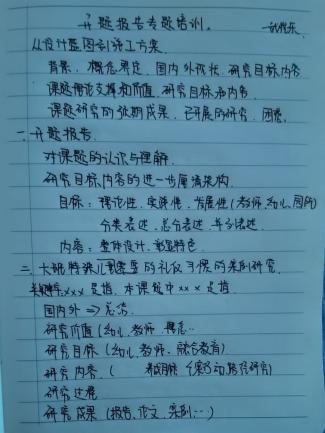 开题报告专题培训。
从设计蓝图到施工方案.
背景、概念界定、国内外现状、研究目标内容
课题理论支撑和价值、研究目标和内容.
课题研究的预期成果、已开展的研究、困惑.
一. 开题报告.
对课题的认识与理解.
研究目标内容的进一步厘清架构.
目标: 理论性、实践性、发展性(教师、幼儿、园所)
分类表述、总分表述、
内容: 整体设计、彰显特色
二、大班特殊儿童 的礼仪 的案例研究.
关键词: xxx是指, 本课题中xxx是指
国内外 =>
研究价值(幼儿、教师、
研究目标(幼儿、教师、融合教育)
研究内容. (
研究过程
研究成果(报告、论文、案例…)